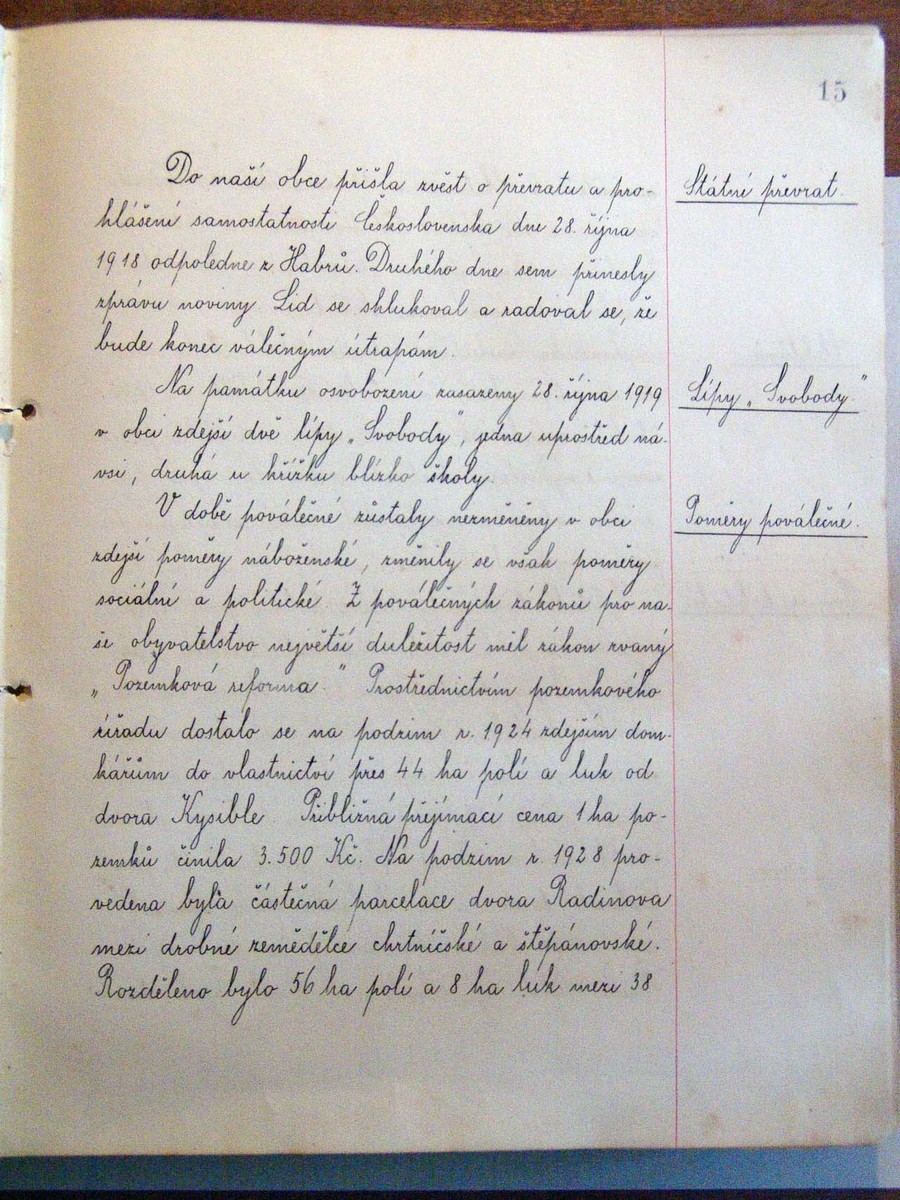 15
Do naší obce přišla zvěst o převratu a pro-
Státní převrat.
hlášení samostatnosti Československa dne 28. října
1918 odpoledne z Habrů. Druhého dne sem přinesly
zprávu noviny. Lid se shlukoval a radoval se, že
bude konec válečným útrapám.
Na památku osvobození zasazeny 28. října 1919
Lípy „Svobody".
v obci zdejší dvě lípy „Svobody", jedna uprostřed ná-
vsi, druhá u křížku blízko školy.
V době poválečné zůstaly nezměněny v obci
Poměry poválečné.
zdejší poměry náboženské, změnily se však poměry
sociální a politické. Z poválečných zákonů pro na-
še obyvatelstvo největší duležitost měl zákon zvaný
„Pozemková reforma." Prostřednictvím pozemkového
úřadu dostalo se na podzim r. 1924 zdejším dom-
kářům do vlastnictví přes 44 ha polí a luk od
dvora Kysible. Přibližná přejímací cena 1 ha po-
zemků činila 3.500 Kč. Na podzim r. 1928 pro-
vedena byla částečná parcelace dvora Radinova
mezi drobné zemědělce chrtníčské a štěpánovské.
Rozděleno bylo 56 ha polí a 8 ha luk mezi 38